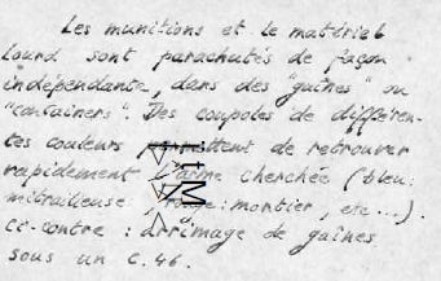 Les munitions et le matériel
lourd sont parachutés de façon
indépendante, dans des "gaines" ou
"containers". Des coupoles de différen-
tes couleurs permettent de retrouver
rapidement l'arme cherchée (bleu:
mitrailleuse, rouge: mortier, etc...).
Ci-contre : arrimage de gaines
sous un C.46.